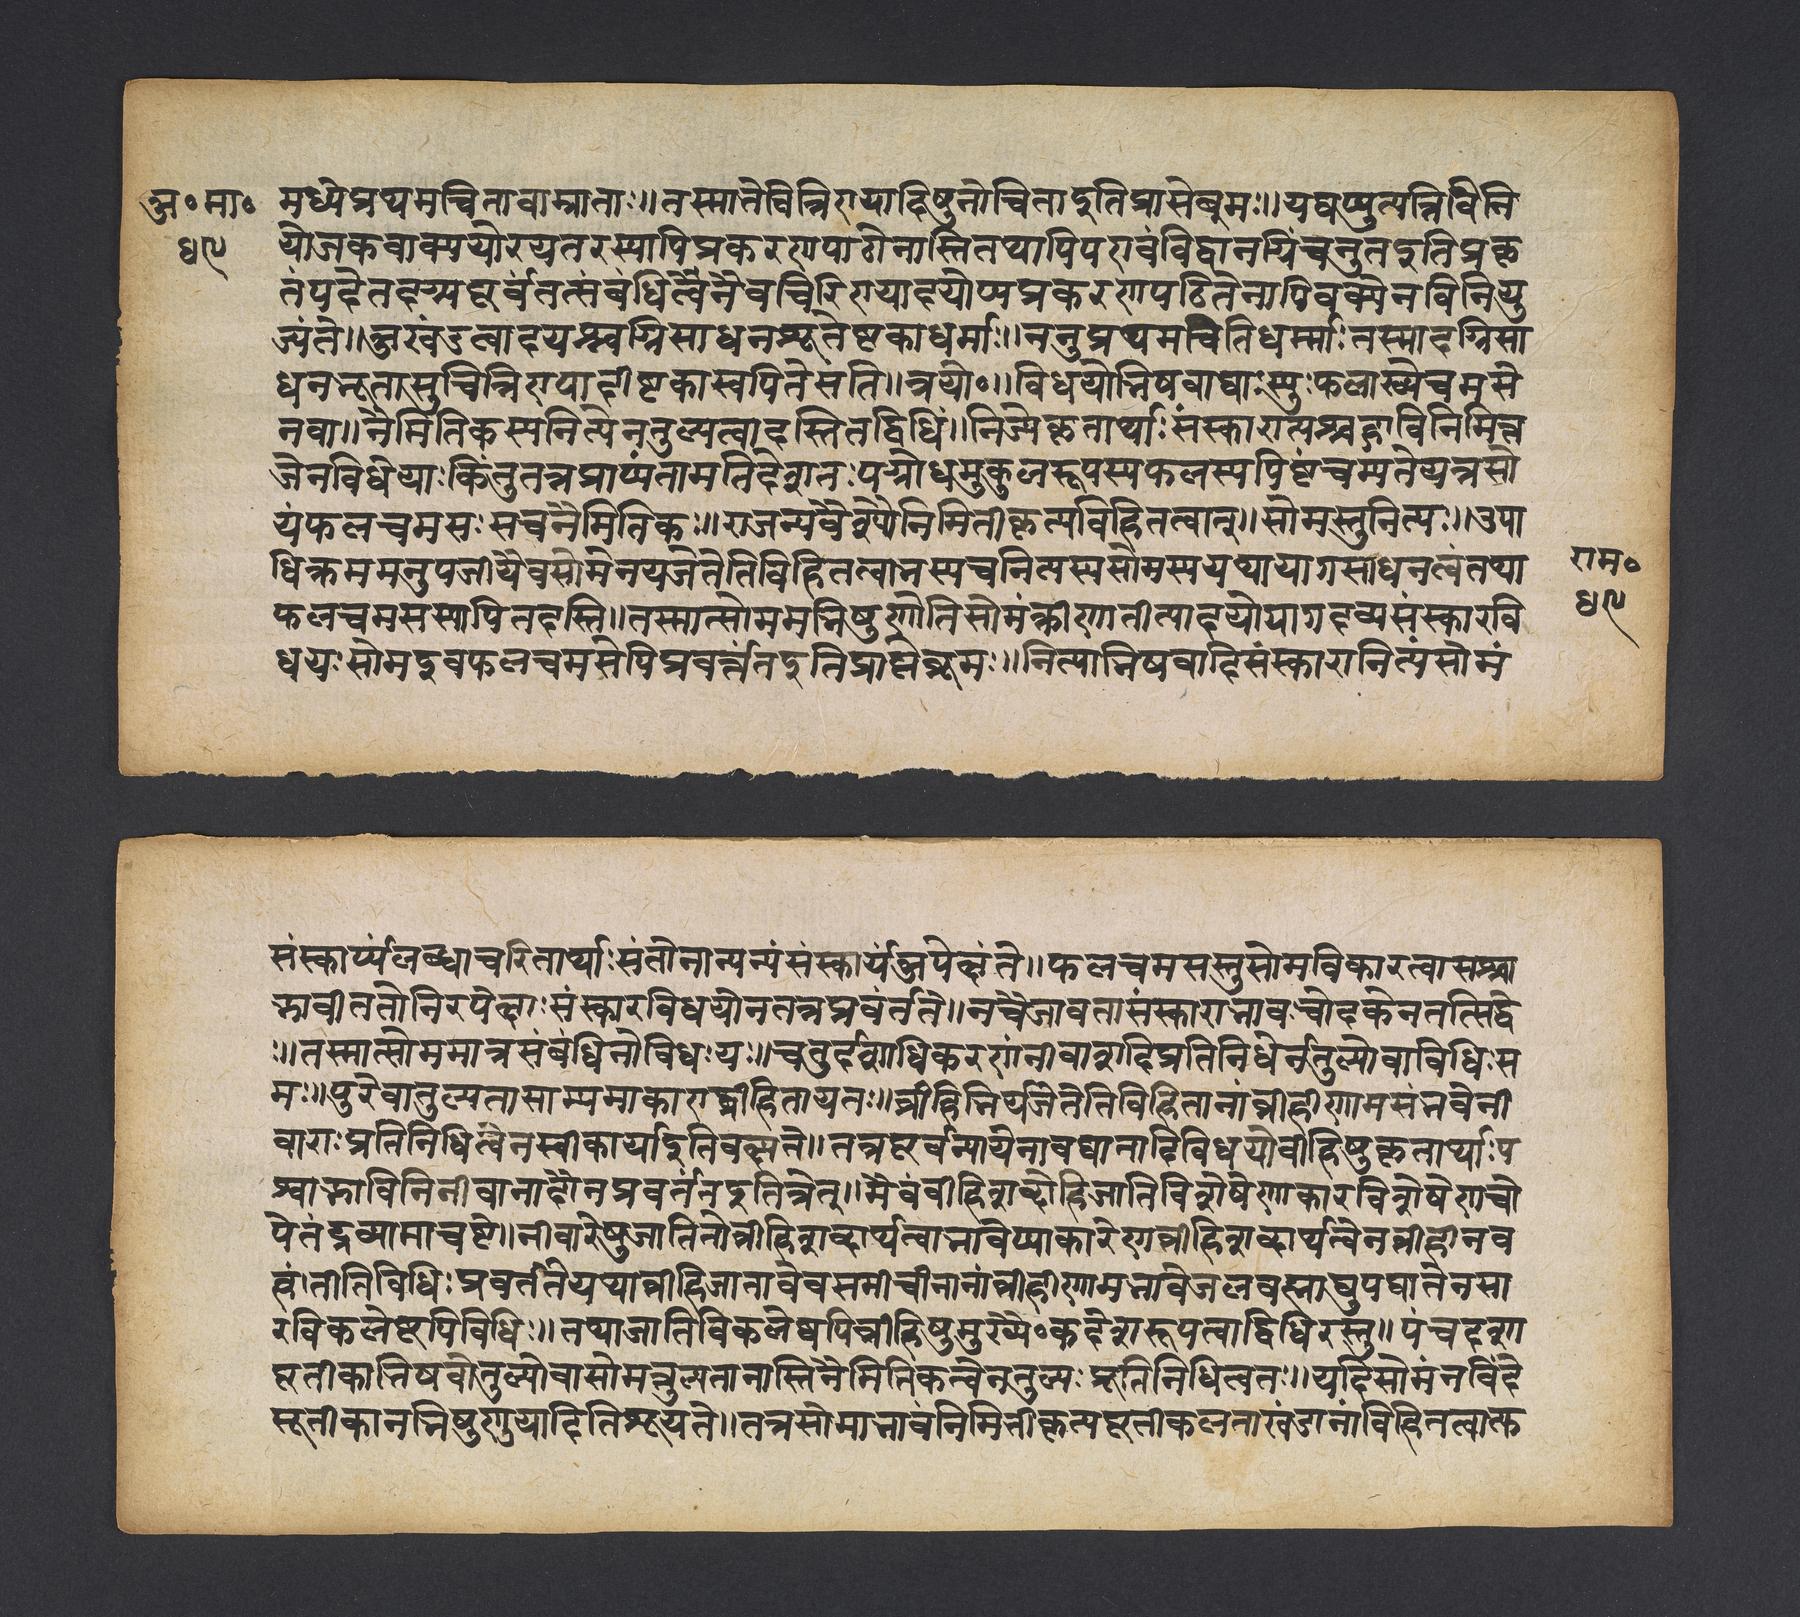 अ॰मा॰
४५
मध्येप्रथमचितावाम्नाताः॥तस्मातेचित्रिणयादिषुनोचितादृतिप्राप्तेब्रूमः॥यद्यप्युत्पत्तिविनि
योजकवाक्ययोरयतरस्यापिप्रकरणपाठोनास्तितथापिपरावंविद्वानग्निंचनुतइतिप्रकृ
तंपदेतदग्न्यपूर्वंतत्संबंधित्वेनैवचित्रिणयादयोप्यप्रकरणपठितेनापिवाक्येनविनियु
ज्यंते॥अखंडत्वादयश्चग्निसाधनभूतेष्टकाधर्माः॥ननुप्रथमचितिधर्म्माःतस्मादग्निसा
धनभूतासुचित्रिणयादीष्टकास्वपितेसंति॥त्रयो॰॥विधयोभिषवाद्याःस्युःफलाख्येचमसे
नवा॥नैमितिकस्यनित्येनतुल्यत्वादस्तितद्विधिः॥नित्येकृतार्थाःसंस्काराःपश्चाद्भाविनिमित्त
जेनविधेयाःकिंतुतत्रप्राप्यंतामतिदेशतःपग्रोधमुकुलरूपस्यफलस्यपिष्टंचम्यतेयत्रसो
यंफलचमसःसचनैमितिकः॥राजन्यवैश्येनिमितीकृत्यविहितत्वात्॥सोमस्तुनित्यः॥उपा
धिक्रममनुपजीयैवसोमेनयजेतेतिविहितत्वात्तस्यचनित्यस्यसोमस्ययथायागसाधनत्वंतथा
फलचमसस्यापितदस्ति॥तस्मात्सोममभिषुणोतिसोमंक्रीणातीत्यादयोयागद्रव्यसंस्कारवि
धयःसोमइवफलचमसेपिप्रवर्त्तंतइतिप्राप्तेब्रूमः॥नित्याभिषवादिसंस्कारानित्यंसोमं
राम॰
४५
संस्कार्य्यंलब्ध्वाचरितार्थाःसंतोनान्यन्यंसंस्कार्यंअपेक्षंते॥फलचमसस्तुसोमविकारत्वात्पश्चा
द्भावीततोनिरपेक्षाःसंस्कारविधयोनतत्रप्रवर्तंते॥नचैतावतासंस्काराभावःचोदकेनतत्सिद्धे
ः॥तस्मात्सोममात्रसंबंधिनोविधःयः॥चतुर्दशाधिकरणंनीवारादिप्रतिनिधेर्नतुल्योवाविधिःस
मः॥पुरेवातुल्यतासाम्यमाकाराद्व्रीहितायतः॥व्रीहिभिर्यजेतेतिविहितानांव्रीहीणामसंभवेनी
वाराःप्रतिनिधित्वेनस्वीकार्याइतिवक्ष्यते॥तत्रपूर्वन्यायेनावघातादिविधयोव्रीहिषुकृतार्थाःप
श्चाद्भाविनिनीवारादौनप्रवर्तंतइतिचेत्॥मैवंव्रीहिशब्दोहिजातिविशेषेणाकारविशेषेणचो
पेतंद्रव्यामाचष्टे॥नीवारेषुजातितोव्रीहिशब्दार्थत्वाभावेप्याकारेणव्रीहिशब्दार्थत्वेनव्रीहीनव
हंतीतिविधिःप्रवर्ततेयथाव्रीहिजातावेवसमीचीनानांव्रीहीणामभावेजलवस्नाद्युपघातेनसा
रविकलेष्वपिविधिः॥तथाजातिविकलेष्वपिव्रीहिषुमुख्यै॰कदेशरूपत्वाद्विधिरस्तु॥पंचदशा
पूतीकाभिषवोतुल्योवासोमत्तुल्यतानास्तिनैमितिकत्वेनतुल्यःप्रतिनिधित्वतः॥यदिसोमंनविंदे
त्पूतीकानभिषुणुयादितिश्रूयते॥तत्रसोमाभावंनिमितीकृत्यपूतीकलताखंडानांविहितत्वात्फ